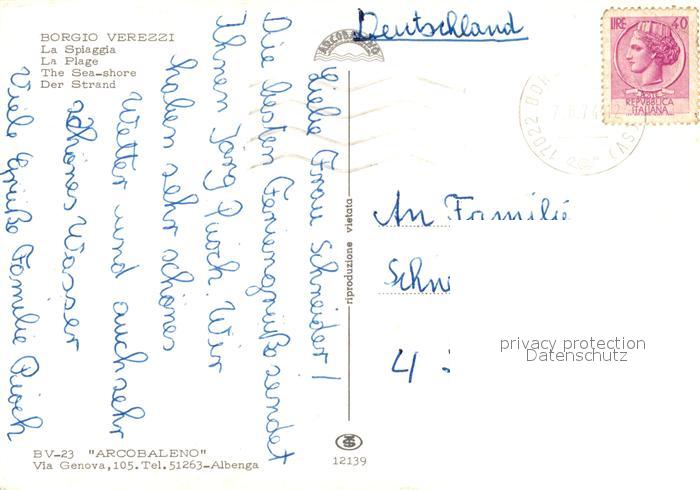 BORGIO VEREZZI
La Spiaggia
La Plage
The Sea-shore
Der Strand
ARCOBALENO
Deutschland
LIRE 40
POSTE
REPVBBLICA
ITALIANA
17022 BOR
(SV)
Liebe Frau Schneider!
Die besten Feriengrüße sendet
Ihnen Jörg
Wir
haben sehr schönes
Wetter und auch sehr
schönes Wasser
Viele Grüße Familie
riproduzione vietata
An Familie
Schn
4
privacy protection
Datenschutz
BV-23 "ARCOBALENO"
Via Genova, 105. Tel. 51263-Albenga
12139